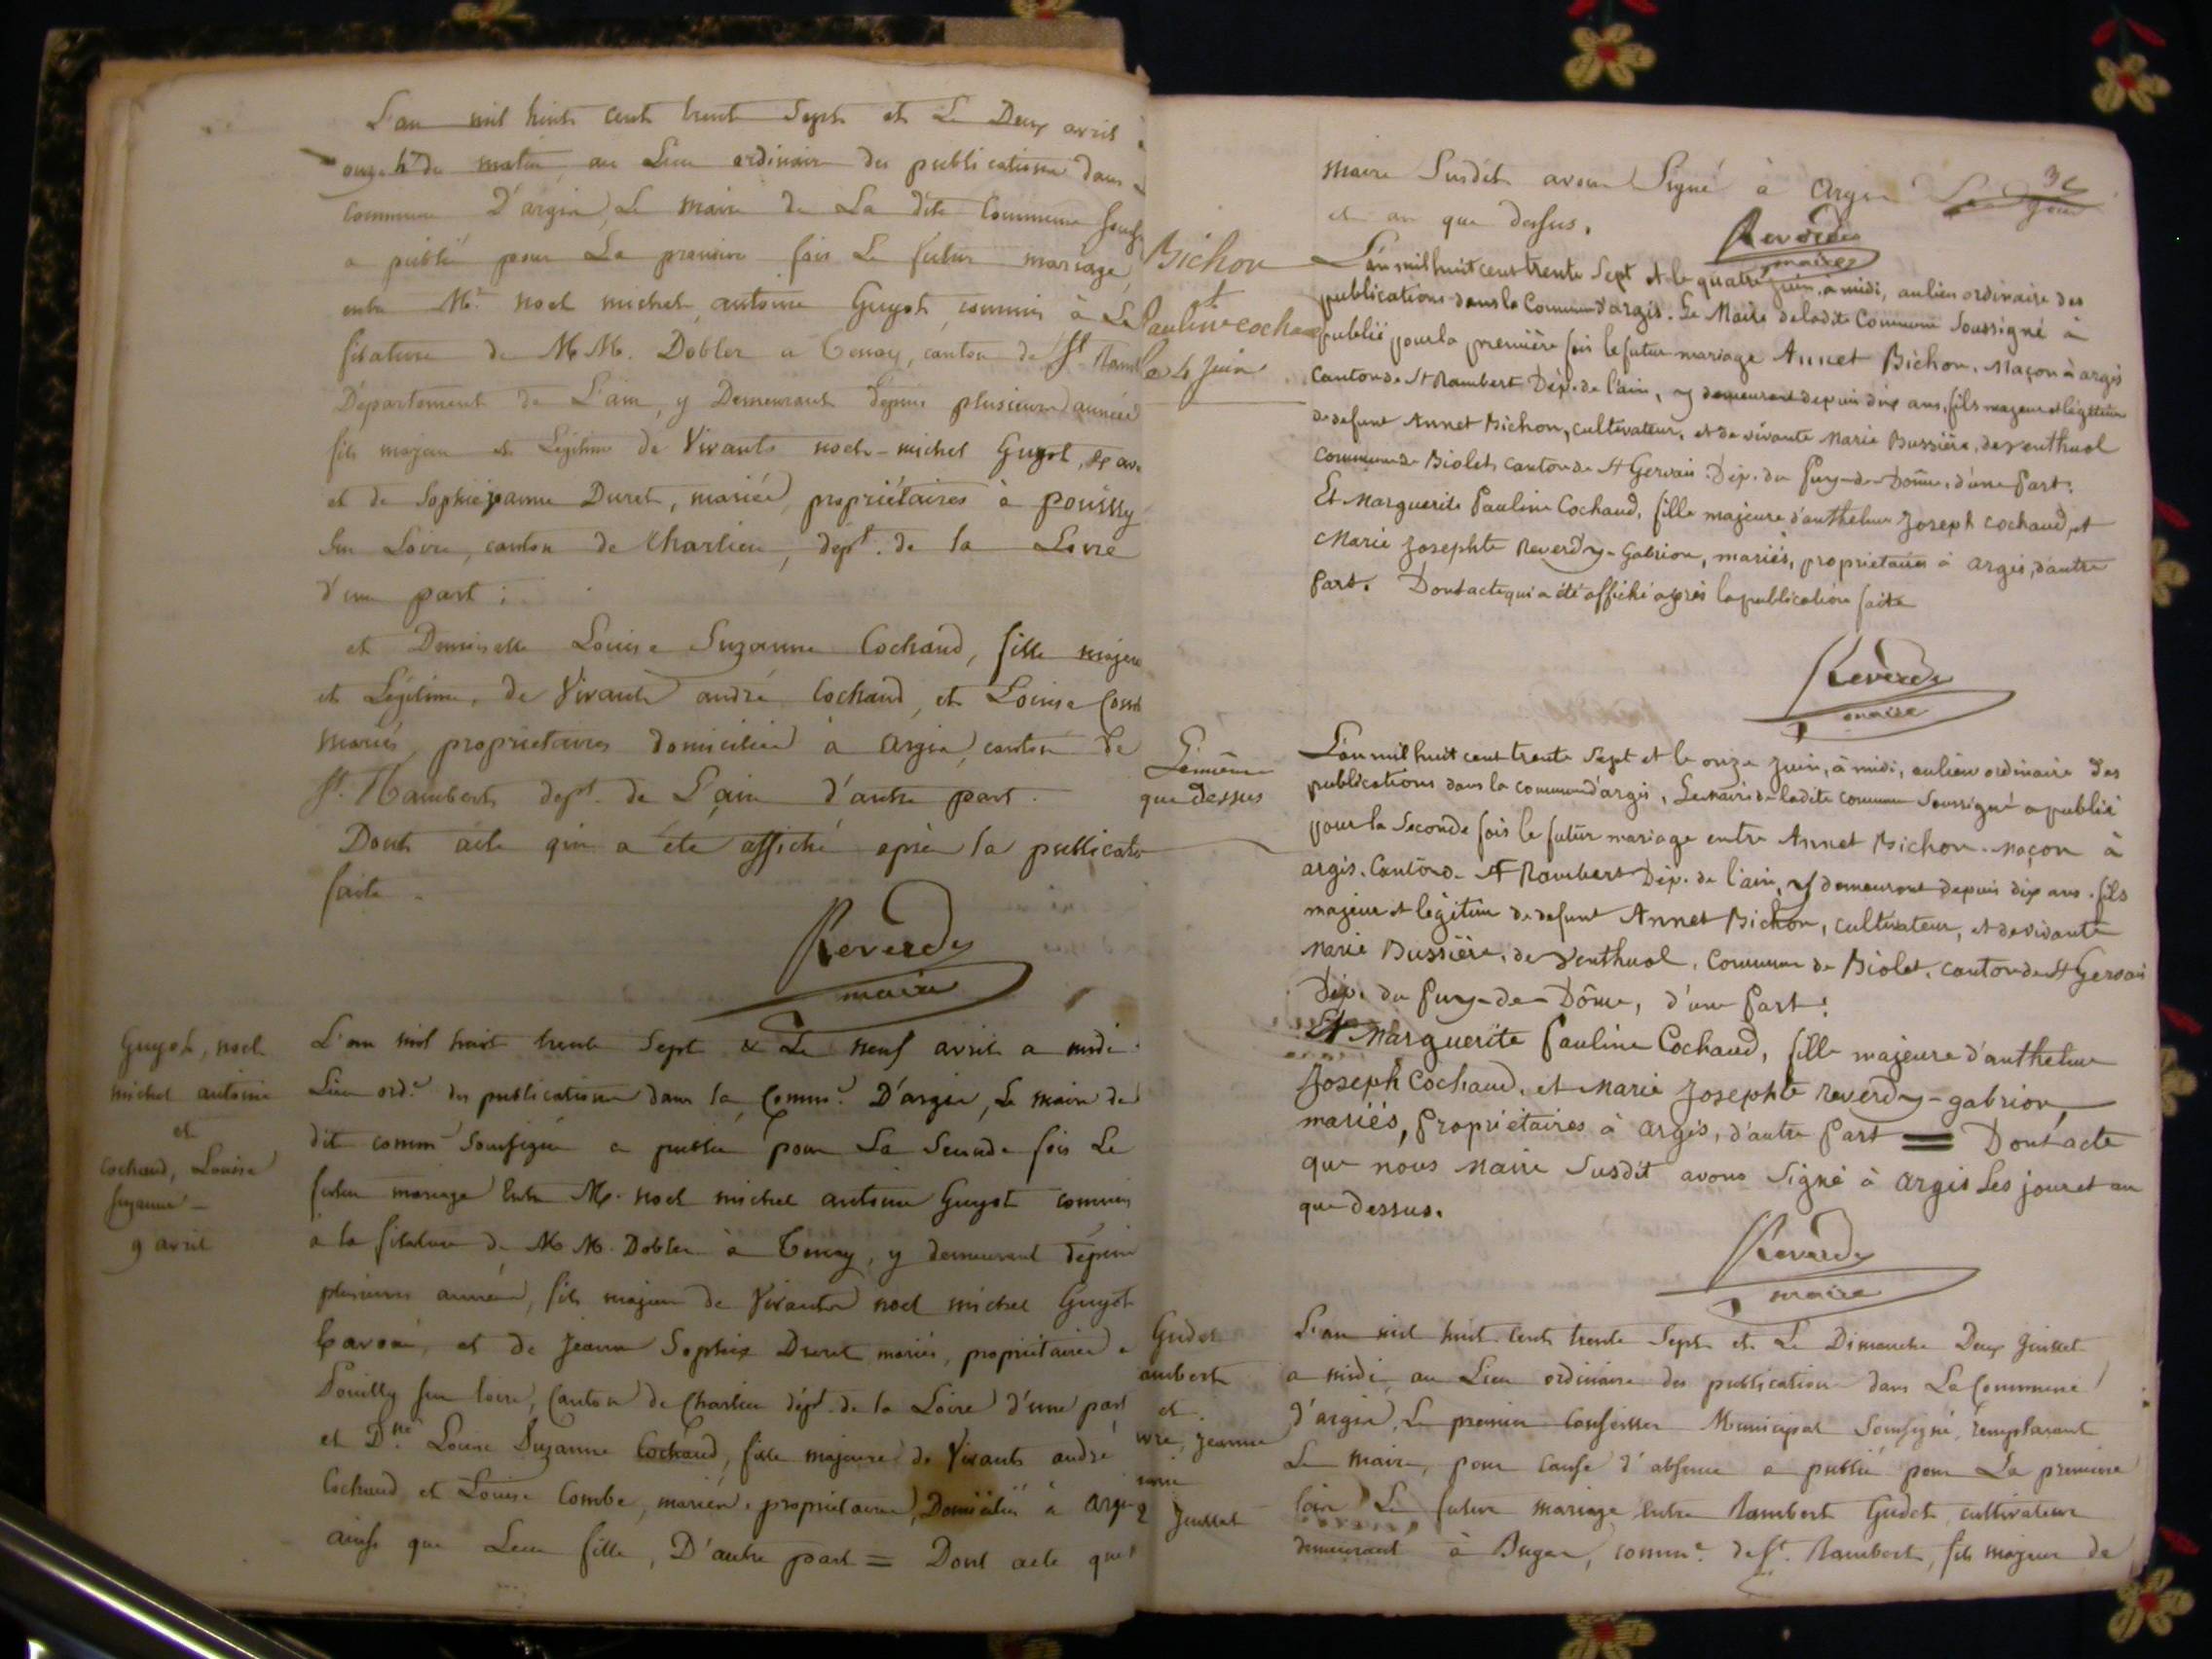 L'an mil huit cent trent Sept et Le Deux avril à
onze hres du matin au Lieu ordinaire des publications dans
commune D'argis, Le Maire de La dite Commune
a publié pour La premiere fois Le futur mariage
entre Mr. noel michel antoine Guyot, commis à
filature de M M. Dobler a Tenay, canton de St. Ramb
Département de L'ain, y Demeurant depuis plusieurs années
fils majeur et Légitime de Vivants noel-michel Guyot,
et de Sophie jeanne Duret, mariés propriétaires à pouilly
Sur Loire, canton de Charlieu, dept. de la Loire
d'une part ;
et Demoiselle Louise Suzanne Cochaud, fille majeure
et Légitime, de Vivants andré Cochaud, et Louise Comb
mariés, propriétaires domiciliés à argis, canton de
St. Rambert dept. de L'ain d'autre part.
Dont acte qui a été affiché après la publicatio
faite.
Reverdy
maire
Guyot, noel
michel antoine
et
cochaud, Louise
suzanne —
9 avril
L'an mil huit trente Sept & Le neuf avril a midi
Lieu ord.e des publications dans la Comm.e D'argis, Le maire de
dite comm.e Soussigné a publié pour La Seconde fois Le
futur mariage Entre Mr. noel michel antoine Guyot commis
à la filature de M M. Dobler à Tenay, y demeurant depuis
plusieurs années, fils majeur de Vivants noel michel Guyot
et de jeanne Sophie Duret mariés, propriétaires a
Pouilly Sur loire, Canton de Charlieu dépt. de la Loire d'une part
et Dlle. Louise Suzanne Cochaud, fille majeure de Vivants andré
Cochaud et Louise Combe, mariés, propriétaires, Domiciliés à argis
ainsi que Leur fille, D'autre part = Dont acte que
maire Susdit avons Signé à Argis Les jour
et an que dessus.
Reverdy
maire
Bichon
et
Pauline cochaud
le 4 juin
L'an mil huit cent trente Sept et le quatre juin, à midi, au lieu ordinaire des
publications dans la Commune d'argis. Le Maire de ladite Commune Soussigné a
publié pour la première fois le futur mariage Annet Bichon. Maçon à argis
Canton de St Rambert Dép. de l'ain, y demeurant depuis dix ans, fils majeur et légitime
de defunt Annet Bichon, cultivateur, et de vivante Marie Bussière, de venthuol
commune de Biolet, canton de St Gervais. Dép. du Puy-de-Dôme, d'une Part.
Et Marguerite Pauline Cochaud, fille majeure d'anthelme Joseph cochaud, et
Marie Josephte Reverdy-Gabrion, mariés, propriétaires à argis, d'autre
Part. Dont acte qui a été affiché après la publication faite
Reverdy
maire
Le même
que dessus
L'an mil huit cent trente Sept et le onze juin, à midi, au lieu ordinaire des
publications dans la commune d'argis, Le maire de ladite commune Soussigné a publié
pour la Seconde fois le futur mariage entre Annet Bichon. Maçon à
argis. Canton de St Rambert Dép. de l'ain, y demeurant depuis dix ans. fils
majeur et légitime de defunt Annet Bichon, cultivateur, et de vivante
Marie Bussière, de Venthuol, Commune de Biolet, canton de St Gervais
Dép. du Puy-de-Dôme, d'une Part.
Et Marguerite Pauline Cochaud, fille majeure d'anthelme
Joseph Cochaud, et Marie Josephte reverdy-gabrion,
mariés, Propriétaires à argis, d'autre Part = Dont acte
que nous Maire Susdit avons Signé à argis Les jour et an
que dessus.
Reverdy
maire
Gudet
ambert
et
jeanne
2 Juillet
L'an mil huit cent trente Sept et Le Dimanche Deux Juillet
a midi, au Lieu ordinaire des publications dans La Commune
d'argis, Le premier Conseiller Municipal Soussigné, remplaçant
Le Maire, pour cause d'absence a publié pour La premiere
fois Le futur mariage Entre Rambert Gudet, cultivateur
demeurant à Buges, comm.e de St. Rambert, fils majeur de